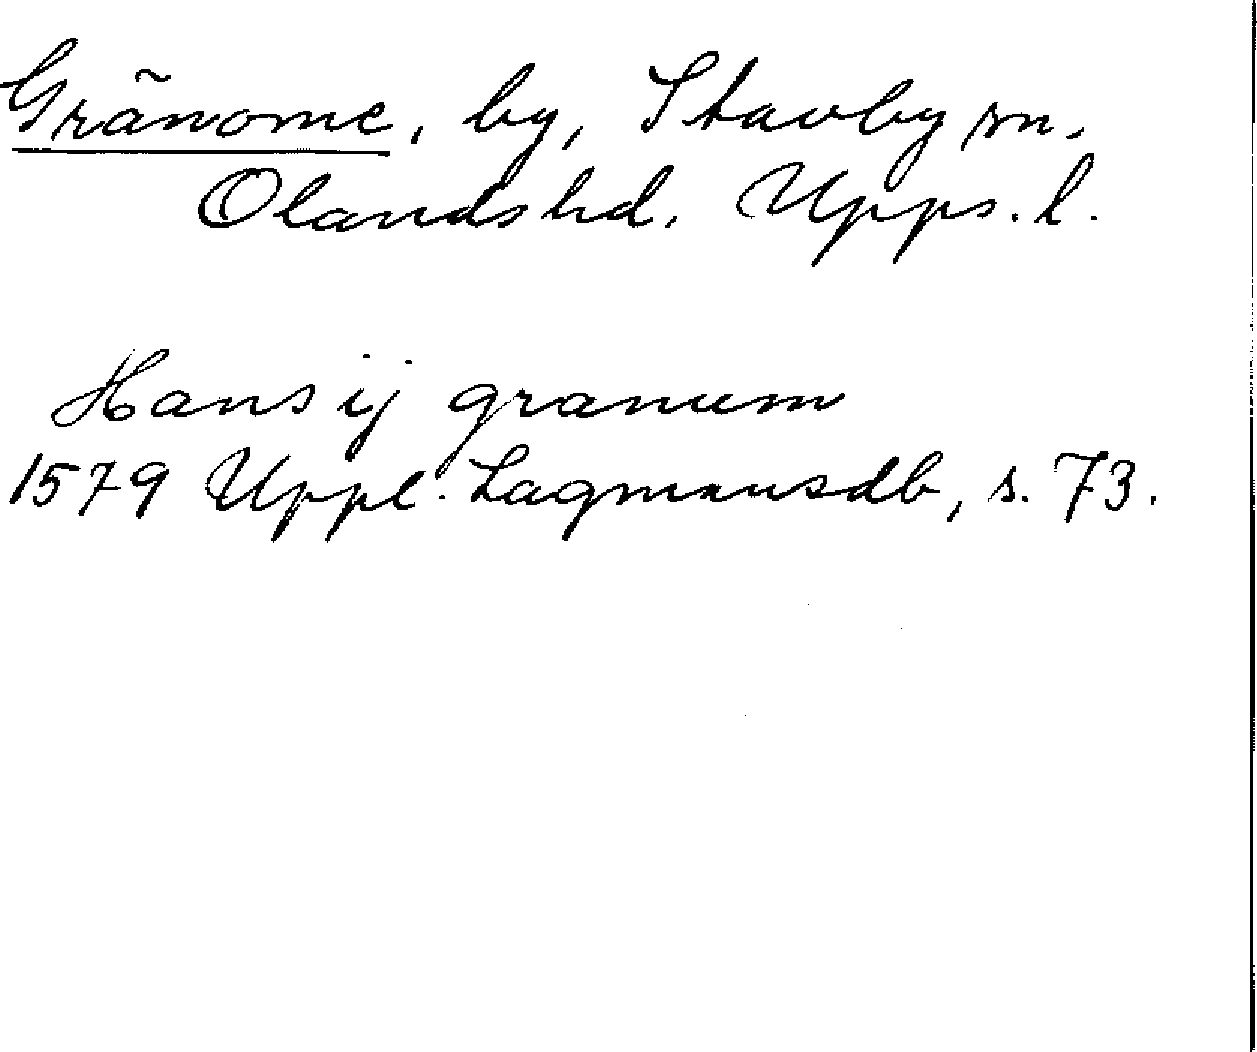 Gränome, by, Stavby sn.
Olands hd. Upps. l.
Hans ij granum
1579 Uppl. Lagmansdb, s. 73.